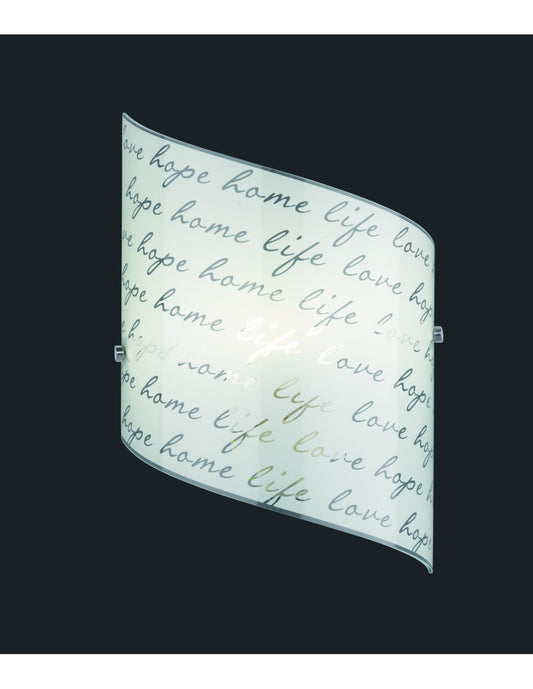 love hope home life love
hope home life love hop
love hope home life love
hope home life love hope
hope home life love
hope home life love hope h
hope home life love hope